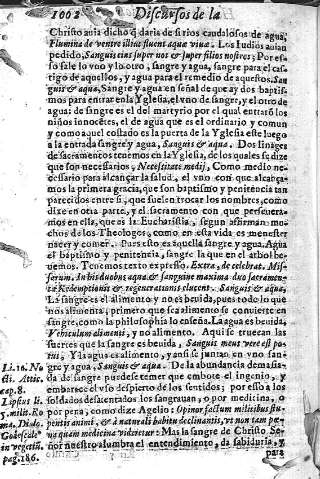 1002 Discursos de la
Christo auia dicho q̃ daria de si rios caudalosos de agua,
Flumina de ventre illius fluent aquæ viuæ. Los Iudios auian
pedido, Sanguis eius super nos & super filios nostros; Por es-
so sale lo vno y lo otro, sangre y agua, sangre para el cas-
tigo de aquellos, y agua para el remedio de aquestos. San
guis & aqua, Sangre y agua en señal de que ay dos baptis-
mos para entrar en la Yglesia, el vno de sangre, y el otro de
agua: de sangre es el del martyrio por el qual entrarõ los
niños inocētes, el de agua que es el ordinario y comun
y como aquel costado es la puerta de la Yglesia este luego
a la entrada sangre y agua, Sanguis & aqua. Dos linages
de sacramentos tenemos en la Yglesia, de los quales se dize
que son necessarios, Necessitate medij, Como medio ne-
cessario para alcançar la salud, el vno con que alcança-
mos la primera gracia, que son baptismo y penitencia tan
parecidos entre si, que suelen trocar los nombres, como
dixe en otra parte, y el sacramento con que perseuera-
mos en ella, que es la Eucharistia, segun afirman mu-
chos de los Theologos, como en esta vida es menester
nacer y comer. Pues esto es aquella sangre y agua. Agua
el baptismo y penitencia, sangre la que en el arbol be-
uemos. Tenemos texto expresso. Extra, de celebrat. Miss
sarum. In his duobus aqua & sanguine maxima duo sacramen-
ta Redemptionis & regenerationis elucent. Sanguis & aqua.
La sangre es el alimento y no es beuida, pues todo lo que
nos alimenta, primero que sea alimento se conuierte en
sangre, como la philosophia lo enseña. La agua es beuida,
Vehiculum alimenti, y no alimento. Aqui se truecan las
suertes que la sangre es beuida, Sanguis meus vere est po-
tus, Y la agua es alimento, y ansi se juntan en vno san-
gre y agua, Sanguis & aqua. De la abundancia demasia-
da de sangre puede temer que embote el ingenio, y
embarece el vso despierto de los sentidos; por esso a los
soldados desalentados los sangrauan, o por medicina, o
por pena, como dize Agelio: Opinor factum militibus stu-
pentis animi, & à naturali habitu declinatis, vt non tam pœ-
na quam medicina videretur: Mas la sangre de Christo Se-
ñor nuestro alumbra el entendimiento, da sabiduria, y
para
Li. 10. No
cti. Attic.
cap. 8.
Lipsius li.
5. milit. Ro
ma, Dido.
in vegetiũ.
pag. 186.